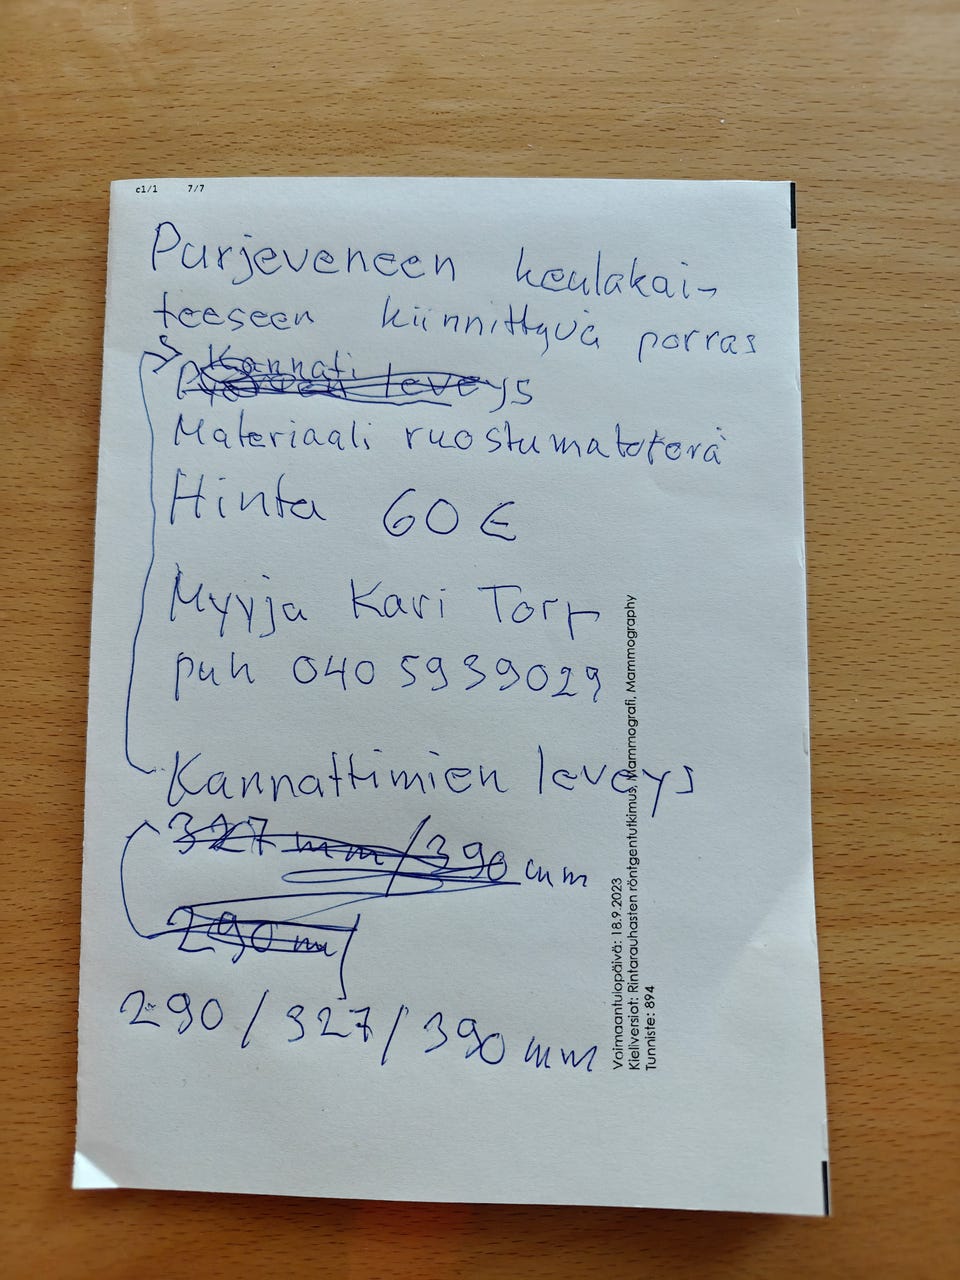 c1/1 7/7
Purjeveneen keulakai-
teeseen kiinnittyvä porras
Kannati
leveys
Materiaali ruostumatoterä
Hinta 60 €
Myyja Kari Torp
puh 040 5939029
Kannattimien leveys
327 mm/390 mm
290 m/
290/327/390 mm
Voimaantulopäivä: 18.9.2023
Kieliversiot: Rintarauhasten röntgentutkimus, Mammografi, Mammography
Tunniste: 894